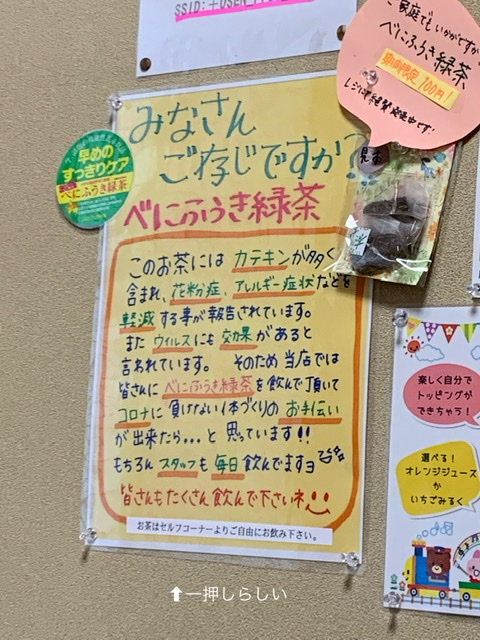 SSID:
ご家庭でもいかがですか
べにふうき緑茶
期間限定 100円!
レジにて絶賛発売中です!
見本
早めの
すっきりケア
べにふうき緑茶
みなさん
ご存じですか?
べにふうき緑茶
このお茶には カテキンが多く
含まれ、花粉症、アレルギー症状などを
軽減する事が報告されています。
また ウィルスにも 効果があると
言われています。 そのため 当店では
皆さんに べにふうき緑茶を飲んで頂いて
コロナに負けない体づくりの お手伝い
が出来たら... と 思っています!!
もちろん スタッフも 毎日 飲んでますヨ
皆さんもたくさん飲んで下さいネ
お茶はセルフコーナーよりご自由にお飲み下さい。
楽しく自分で
トッピングが
できちゃう!
選べる!
オレンジジュース
か
いちごみるく
⬆一押しらしい